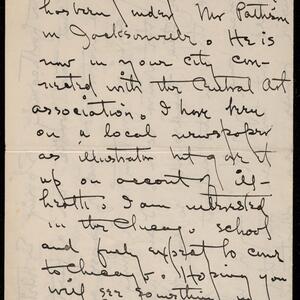 has been under Mr Pattison
in Jacksonville. He is
now in your city con-
nected with the Central Art
association. I have been
on a local newspaper
as illustrator but gave it
up on account of ill-
health. I am interested
in the Chicago school
and fully expect to come
to Chicago. Hoping you
will see something in